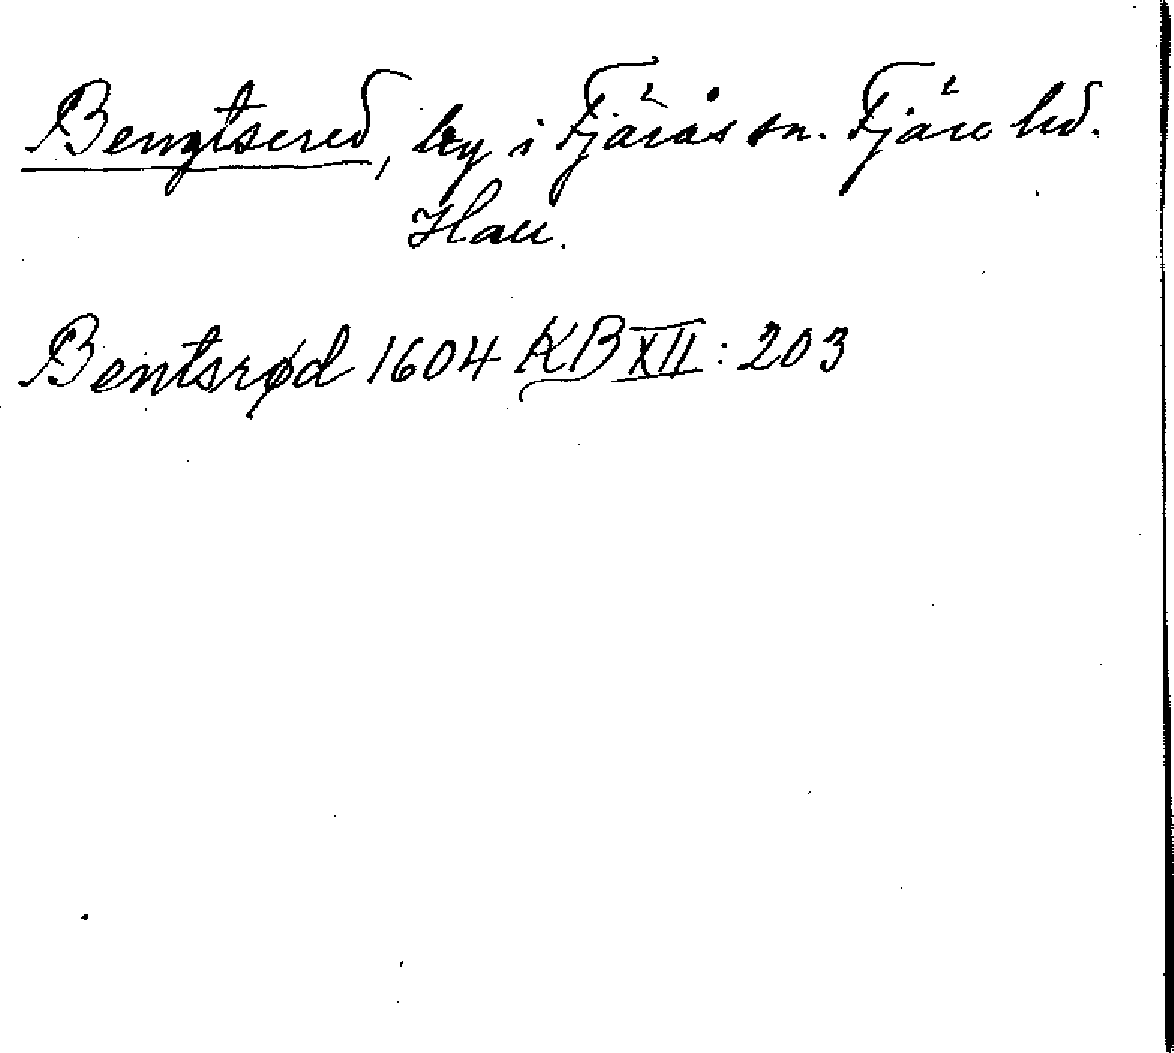 Bengtsered, by i Fjärås sn. Fjäre hd.
Hall.
Bentsrød 1604 KB XII: 203